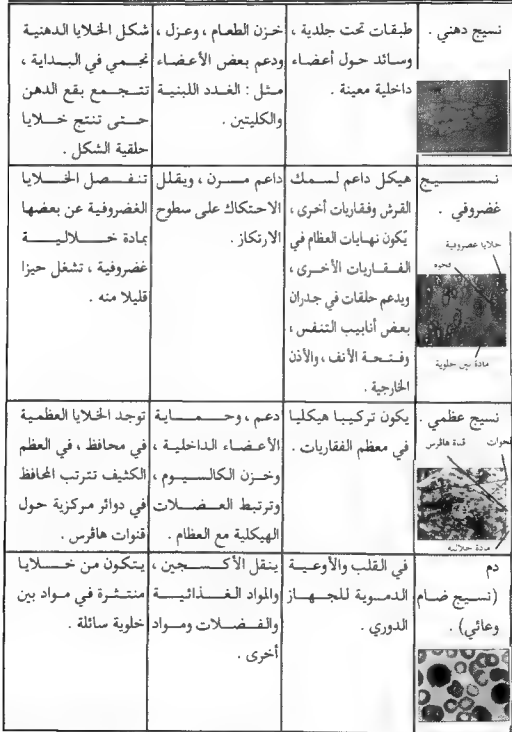 نسيج دهني .
طبقات تحت جلدية ،
وسائد حول أعضاء
داخلية معينة .
خزن الطعام ، وعزل ،
ودعم بعض الأعضاء
مثل : الغدد اللبنية
والكليتين .
شكل الخلايا الدهنية
نجمي في البداية ،
تتجمع بقع الدهن
حتى تنتج خلايا
حلقية الشكل .
نسيج
غضروفي .
خلايا غضروفية
فجوه
مادة بين خلوية
هيكل داعم لسمك
القرش وفقاريات أخرى ،
يكون نهايات العظام في
الفقاريات الأخرى ،
ويدعم حلقات في جدران
بعض أنابيب التنفس ،
وفتحة الأنف ، والأذن
الخارجية .
داعم مرن ، ويقلل
الاحتكاك على سطوح
الارتكاز .
تنفصل الخلايا
الغضروفية عن بعضها
بمادة خلالية
غضروفية ، تشغل حيزا
قليلا منه .
نسيج عظمي .
فجوات قناة هافرس
مادة خلالية
يكون تركيبا هيكليا
في معظم الفقاريات .
دعم ، وحماية
الأعضاء الداخلية ،
وخزن الكالسيوم ،
وترتبط العضلات
الهيكلية مع العظام .
توجد الخلايا العظمية
في محافظ ، في العظم
الكثيف تترتب المحافظ
في دوائر مركزية حول
قنوات هاڤرس .
دم
(نسيج ضام
وعائي) .
في القلب والأوعية
الدموية للجهاز
الدوري .
ينقل الأكسجين ،
والمواد الغذائية
والفضلات ومواد
أخرى .
يتكون من خلايا
منتثرة في مواد بين
خلوية سائلة .